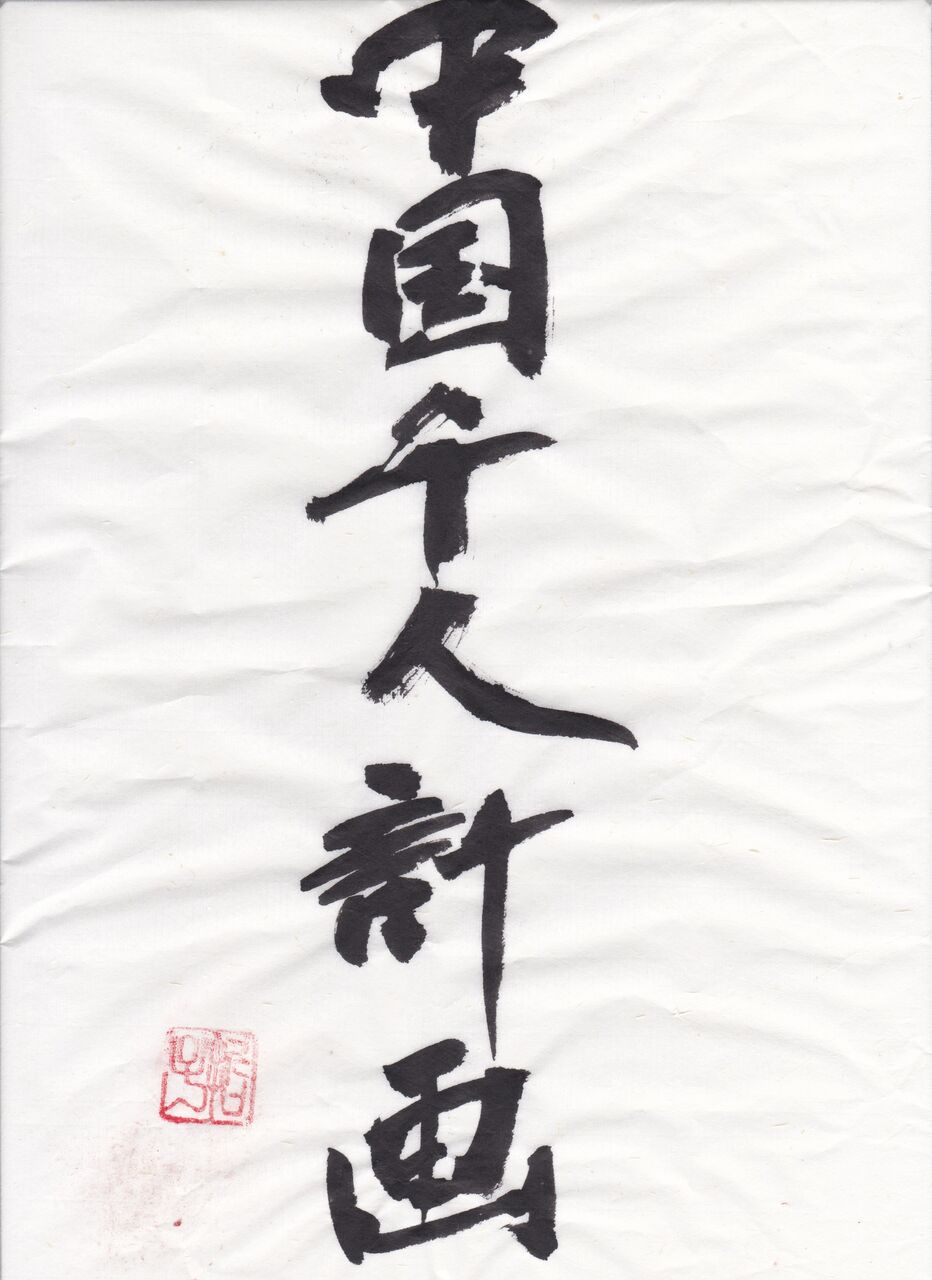 中国千人計画